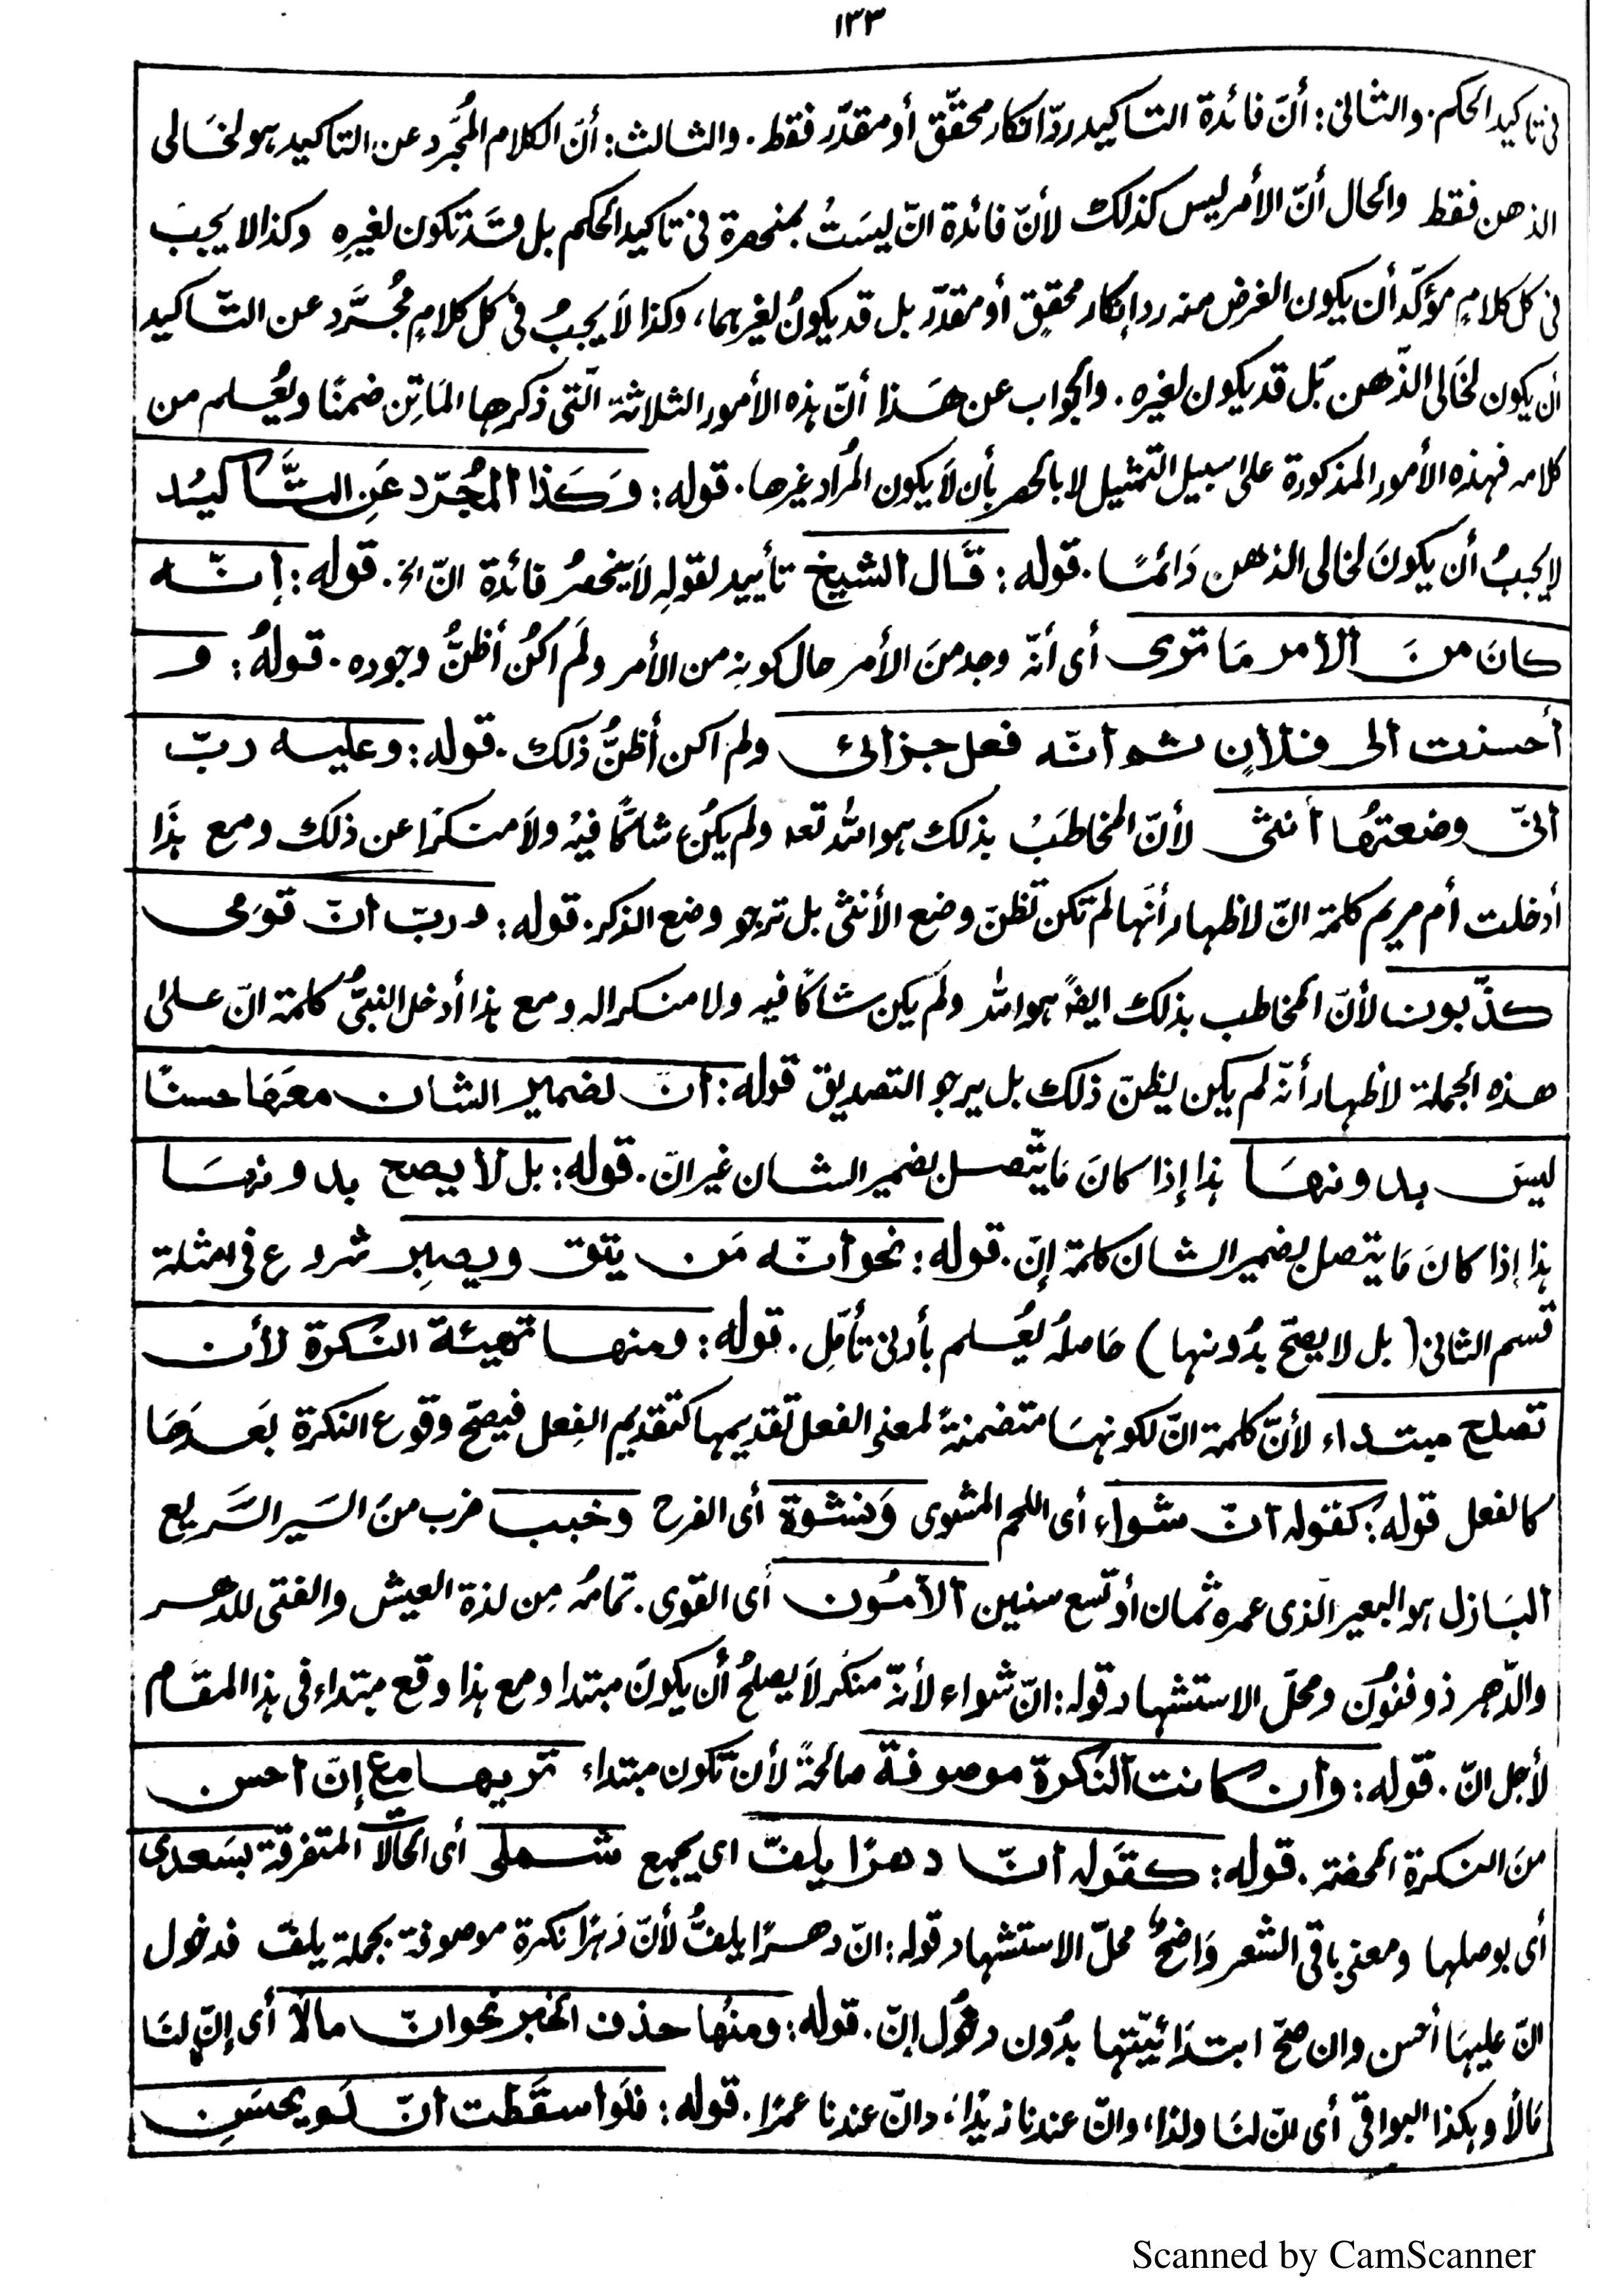 ١٣٣
فى تاكيد الحكم. والثانى: أنّ فائدة التاكيد ردّ انكار محقّق أو مقدّر فقط. والثالث: أنّ الكلام المُجَّرد عن التاكيد هو لخَالى
الذهن فقط والحال أنّ الأمر ليس كذلك لأنّ فائدة انّ ليسَتُ بمنحصرة فى تاكيد الحكم بل قَد تكون لغيرِه وكذا لا يجبَ
فى كل كلامٍ مؤكّد أن يكون الغرض منه رد إنكار محققٍ أو مقدّر بل قد يكونُ لغيرهما، وكذا لَا يجبُ فى كل كلامٍ مُجَرَّد عن التّاكيد
أن يكون لخَالى الذّهن بَل قد يكون لغيره. والجواب عن هَذا أنّ هذه الأمور الثلاثة الّتى ذكرها المَاتِن ضمنًا ويُعْلم من
كلامه فهذه الأمور المذكورة على سبيل التمثيل لا بالحصر بأن لَا يكون المُراد غيرها. قوله: وَكَذا المُجَرّد عَنِ التَّاكيْد
لا يجبُ أن يكونَ لخالى الذهن دَائمًا. قوله: قَال الشيخ تأييد لقولِه لَا ينحصرُ فائدة انّ الخ. قوله: إنّه
كانَ منَ الامر مَا ترى أى أنّه وجد منَ الأمر حال كونه من الأمر ولَم اكنُ أظنُّ وجوده. قولهُ: و
أحسنت الى فلانٍ ثم انّه فعل جزائى ولم اكن أظنُّ ذلك. قوله: وعليه ربّ
انىّ وضعتهُا أنثى لأنّ المخاطَبُ بذلك هو اللّٰه تعه ولم يكُن شاكًا فيهُ ولَا منكرًا عن ذلك ومع هذَا
أدخلت أم مريم كلمة انّ لاظهار أنهَا لم تكن تظنّ وضع الأنثى بل ترجو وضع الذكر. قوله: وربّ انّ قوَمى
كذّبون لأنّ المخاطب بذلك ايضًا هو اللّٰه ولَم يكن شاكًا فيه ولا منكرا له ومع هذا أدخل النبىُّ كلمة انّ على
هذه الجملة لاظهار أنّه لم يكن يظنّ ذلك بل يرجو التصديق قوله: انّ لضمير الشان معَهَا حسنًا
ليسَ بدونهَا هذا إذا كانَ مَا يتّصل بضمير الشان غير انّ. قوله: بل لا يصح بدونهَا
هذا إذا كانَ مَا يتصل بضمير الشان كلمة إنّ. قوله: نحو انّه مَن يتق ويصبِر شروع فى امثلة
قسم الثانى (بل لا يصحّ بدُونها) حَاصلهُ يُعْلم بأدنى تأمّلِ. قوله: ومنها تهيئة النكرة لأن
تصلح مبتداء لأنَّ كلمة انّ لكونهَا متضمنةً لمعنى الفعل تقديمها كتقديم الفِعل فيصحّ وقوع النكرة بَعدَهَا
كالفعل قوله: كقوله انّ شواء أى اللحم المشوى وَنشوة أى الفرح وخبب ضرب منَ السَير السَّرِيع
البَازل هو البعير الّذى عمره ثمان أو تّسع سنين الأمُون أى القوى. تمامهُ مِن لذة العيش والفتى للدهر
والدّهر ذو فنوُن ومحلّ الاستشهاد قوله: انّ شواء لأنّه منكّر لَا يصلحُ أن يكونَ مبتدا ومع هذا وقع مبتداء فى هذا المقَام
لأجل انّ. قوله: وان كانت النكرة موصوفة صالحةً لأن تكون مبتداء تريها مع إنّ احسن
منَ النكرة المحضة. قوله: كقَوله انّ دهرًا يلفّ اى يجمع شملى أى الحالات المتفرقة بسَعدى
أى بوصلها ومعنى باقى الشعر وَاضحٌ محلّ الاستشهاد قوله: انّ دهرًا يلفُّ لأنّ دَهْرًا نكرة موصوفة بجملة يلفّ فدخول
انّ عليهَا أحسن وان صحّ ابتدَائيّتها بدُون دخُول إنّ. قوله: ومنهُا حذف الخبر نحو انّ مالًا أى إنّ لنَا
مَالًا وهكذا البواقى أى انّ لنَا ولدًا، وانّ عندنا زيْدًا، وانّ عندنا عمرًا. قوله: فلَو اسقَطت انّ لَم يحسَنِ
Scanned by CamScanner